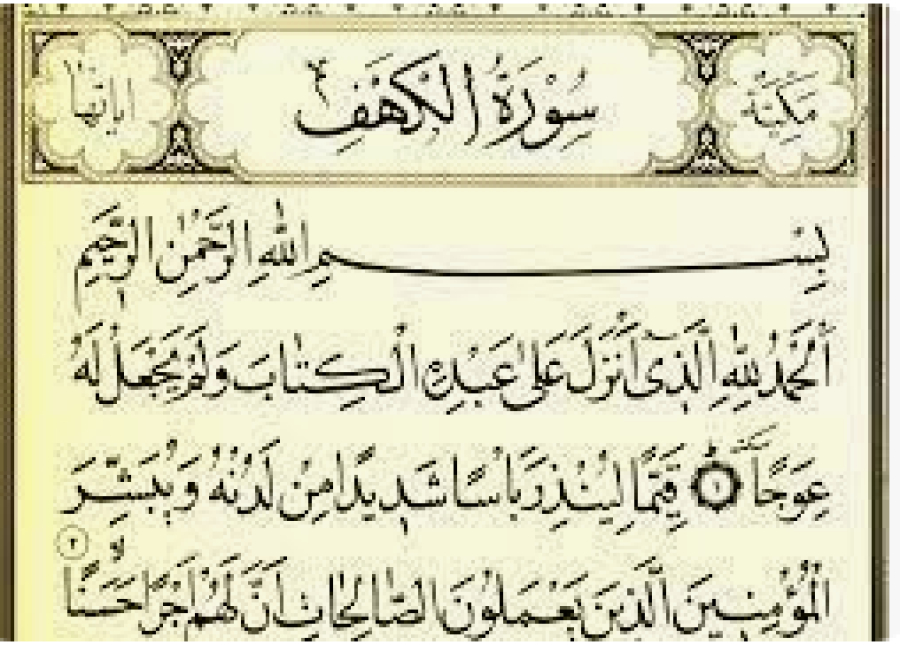 مَكِّيَّة سُورَةُ الْكَهْفِ اياتها ١١٠
بِسْمِ اللّٰهِ الرَّحْمٰنِ الرَّحِيمِ
اَلْحَمْدُ لِلّٰهِ الَّذ۪ٓى اَنْزَلَ عَلٰى عَبْدِهِ الْكِتَابَ وَلَمْ يَجْعَلْ لَهُ
عِوَجًا ١ قَيِّمًا لِيُنْذِرَ بَأْسًا شَد۪يدًا مِنْ لَدُنْهُ وَيُبَشِّرَ
الْمُؤْمِن۪ينَ الَّذ۪ينَ يَعْمَلُونَ الصَّالِحَاتِ اَنَّ لَهُمْ اَجْرًا حَسَنًا ٢